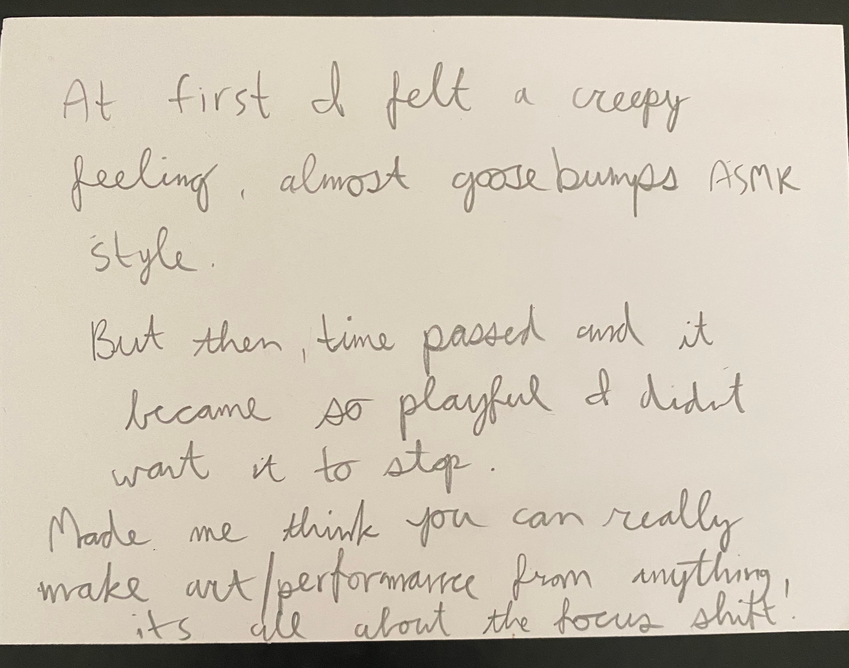 At first I felt a creepy
feeling, almost goosebumps ASMR
style.
But then, time passed and it
became so playful I didnt
want it to stop.
Made me think you can really
make art/performance from anything,
its all about the focus shift!